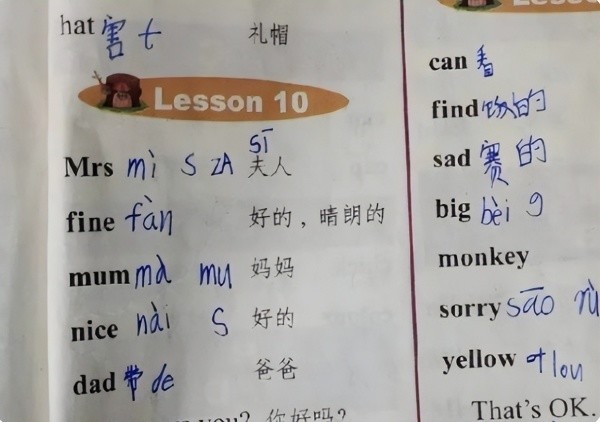 hat 害 t 礼帽
Lesson 10
Mrs mì S ZA sī 夫人
fine fàn 好的，晴朗的
mum mà mu 妈妈
nice nài S 好的
dad 带 de 爸爸
你好吗?
Lesso
can 看
find 饭的
sad 赛 的
big bèi g
monkey
sorry sāo rù
yellow 叶 lou
That's OK.